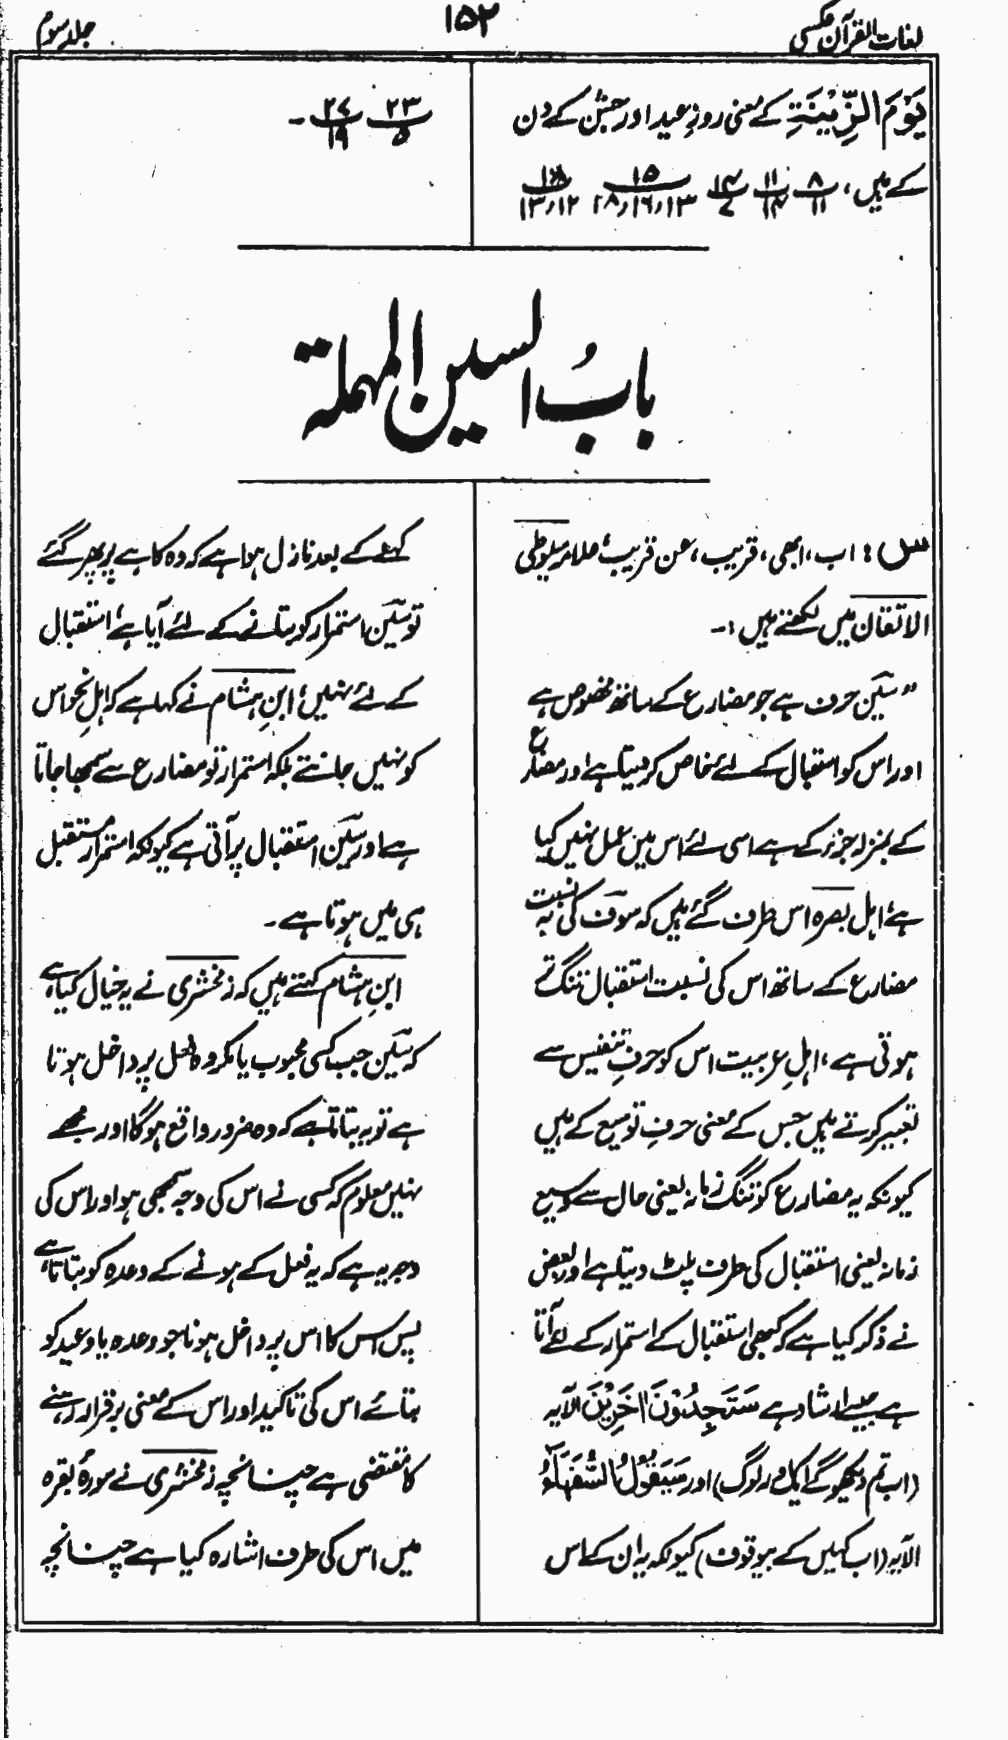 لغات القرآن عکسی
۱۵۲
جلد سوم
یَوْمَ الزِّیْنَةِ کے معنی روزِ عید اور جشن کے دن
کے ہیں،
باب السین المہملة
س : اب، ابھی، قریب، عن قریب، علامہ سیوطی
الاتقان میں لکھتے ہیں :۔
"سین حرف ہے جو مضارع کے ساتھ مخصوص ہے
اور اس کو استقبال کے لئے خاص کر دیتا ہے اور مضارع
کے بمنزلہ جزء کے ہے اسی لئے اس میں عمل نہیں کیا
ہے، اہل بصرہ اس طرف گئے ہیں کہ سوف کی بہ نسبت
مضارع کے ساتھ اس کی نسبت استقبال تنگ تر
ہوتی ہے، اہلِ عربیت اس کو حرفِ تنفیس سے
تعبیر کرتے ہیں جس کے معنی حرفِ توسیع کے ہیں
کیونکہ یہ مضارع کو تنگ زمانہ یعنی حال سے وسیع
زمانہ یعنی استقبال کی طرف پلٹ دیتا ہے اور بعض
نے ذکر کیا ہے کہ کبھی استقبال کے استمرار کے لئے آتا
ہے جیسے ارشاد ہے سَتَجِدُوْنَ اٰخَرِیْنَ الآیہ
(اب تم دیکھو گے ایک اور لوگ) اور سَیَقُوْلُ السُّفَهَآءُ
الآیہ (اب کہیں گے بیوقوف) کیونکہ یہ ان کے اس
کہنے کے بعد نازل ہوا ہے کہ وہ کاہے پر پھر گئے
تو سین استمرار کو بتانے کے لئے آیا ہے، استقبال
کے لئے نہیں، ابنِ ہشام نے کہا ہے کہ اہلِ نحو اس
کو نہیں جانتے بلکہ استمرار تو مضارع سے سمجھا جاتا
ہے اور سین استقبال پر آتی ہے کیونکہ استمرار مستقبل
ہی میں ہوتا ہے۔
ابنِ ہشام کہتے ہیں کہ زمخشری نے یہ خیال کیا ہے
کہ سین جب کسی محبوب یا مکروہ فعل پر داخل ہوتا
ہے تو یہ بتاتا ہے کہ وہ ضرور واقع ہوگا اور مجھے
نہیں معلوم کہ کسی نے اس کی وجہ سمجھی ہو اور اس کی
وجہ یہ ہے کہ یہ فعل کے ہونے کے وعدہ کو بتاتا ہے
پس اس کا اس پر داخل ہونا جو وعدہ یا وعید کو
بتائے اس کی تاکید اور اس کے معنی برقرار رہنے
کا مقتضی ہے چنانچہ زمخشری نے سورۂ بقرہ
میں اس کی طرف اشارہ کیا ہے چنانچہ